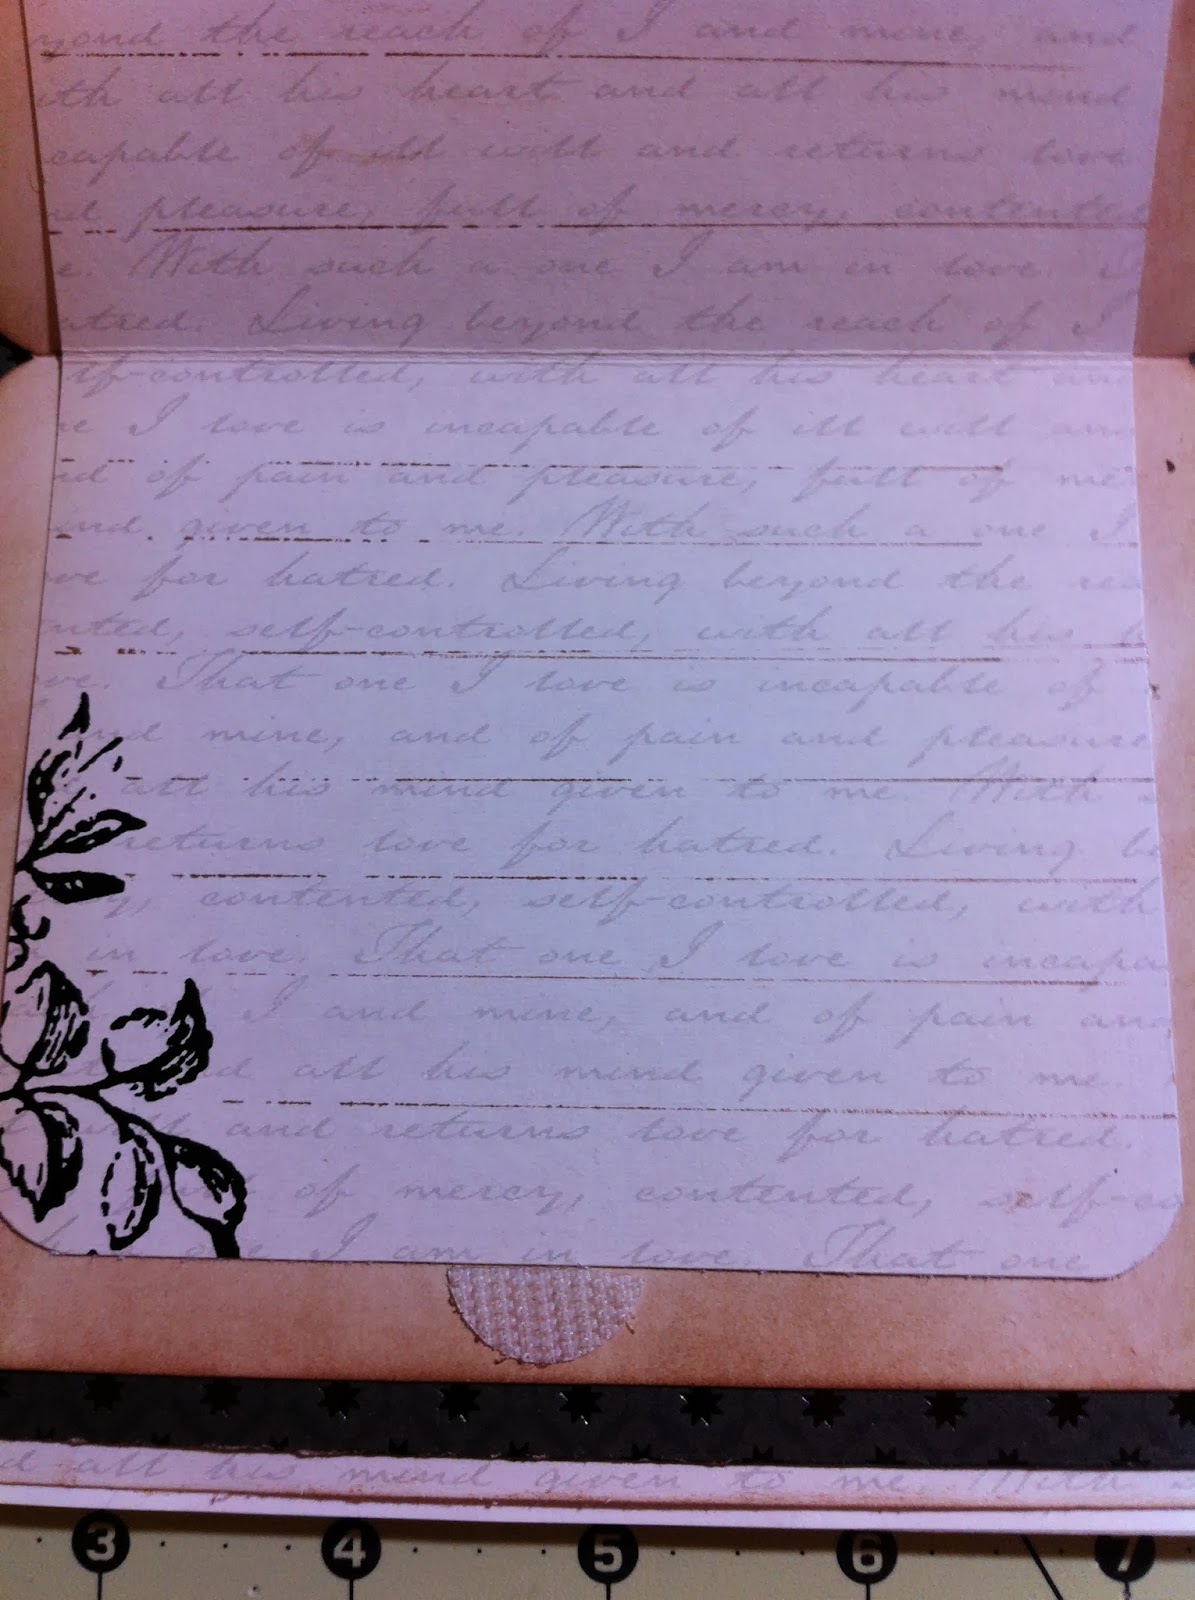 yond the reach of I and mine, and
ith all his heart and all his mind
capable of ill will and returns love
nd pleasure, full of mercy, contented
e. With such a one I am in love.
atred. Living beyond the reach of I
lf-controlled, with all his heart an
ne I love is incapable of ill will an
nd of pain and pleasure, full of me
ind given to me. With such a one I
ove for hatred. Living beyond the rea
ented, self-controlled, with all his h
ve. That one I love is incapable of
and mine, and of pain and pleasure
all his mind given to me. With
returns love for hatred. Living be
y, contented, self-controlled, with
in love. That one I love is incapa
I and mine, and of pain and
all his mind given to me.
will and returns love for hatred.
of mercy, contented, self-co
one I am in love. That one
d all his mind given to me. With
3 4 5 6 7